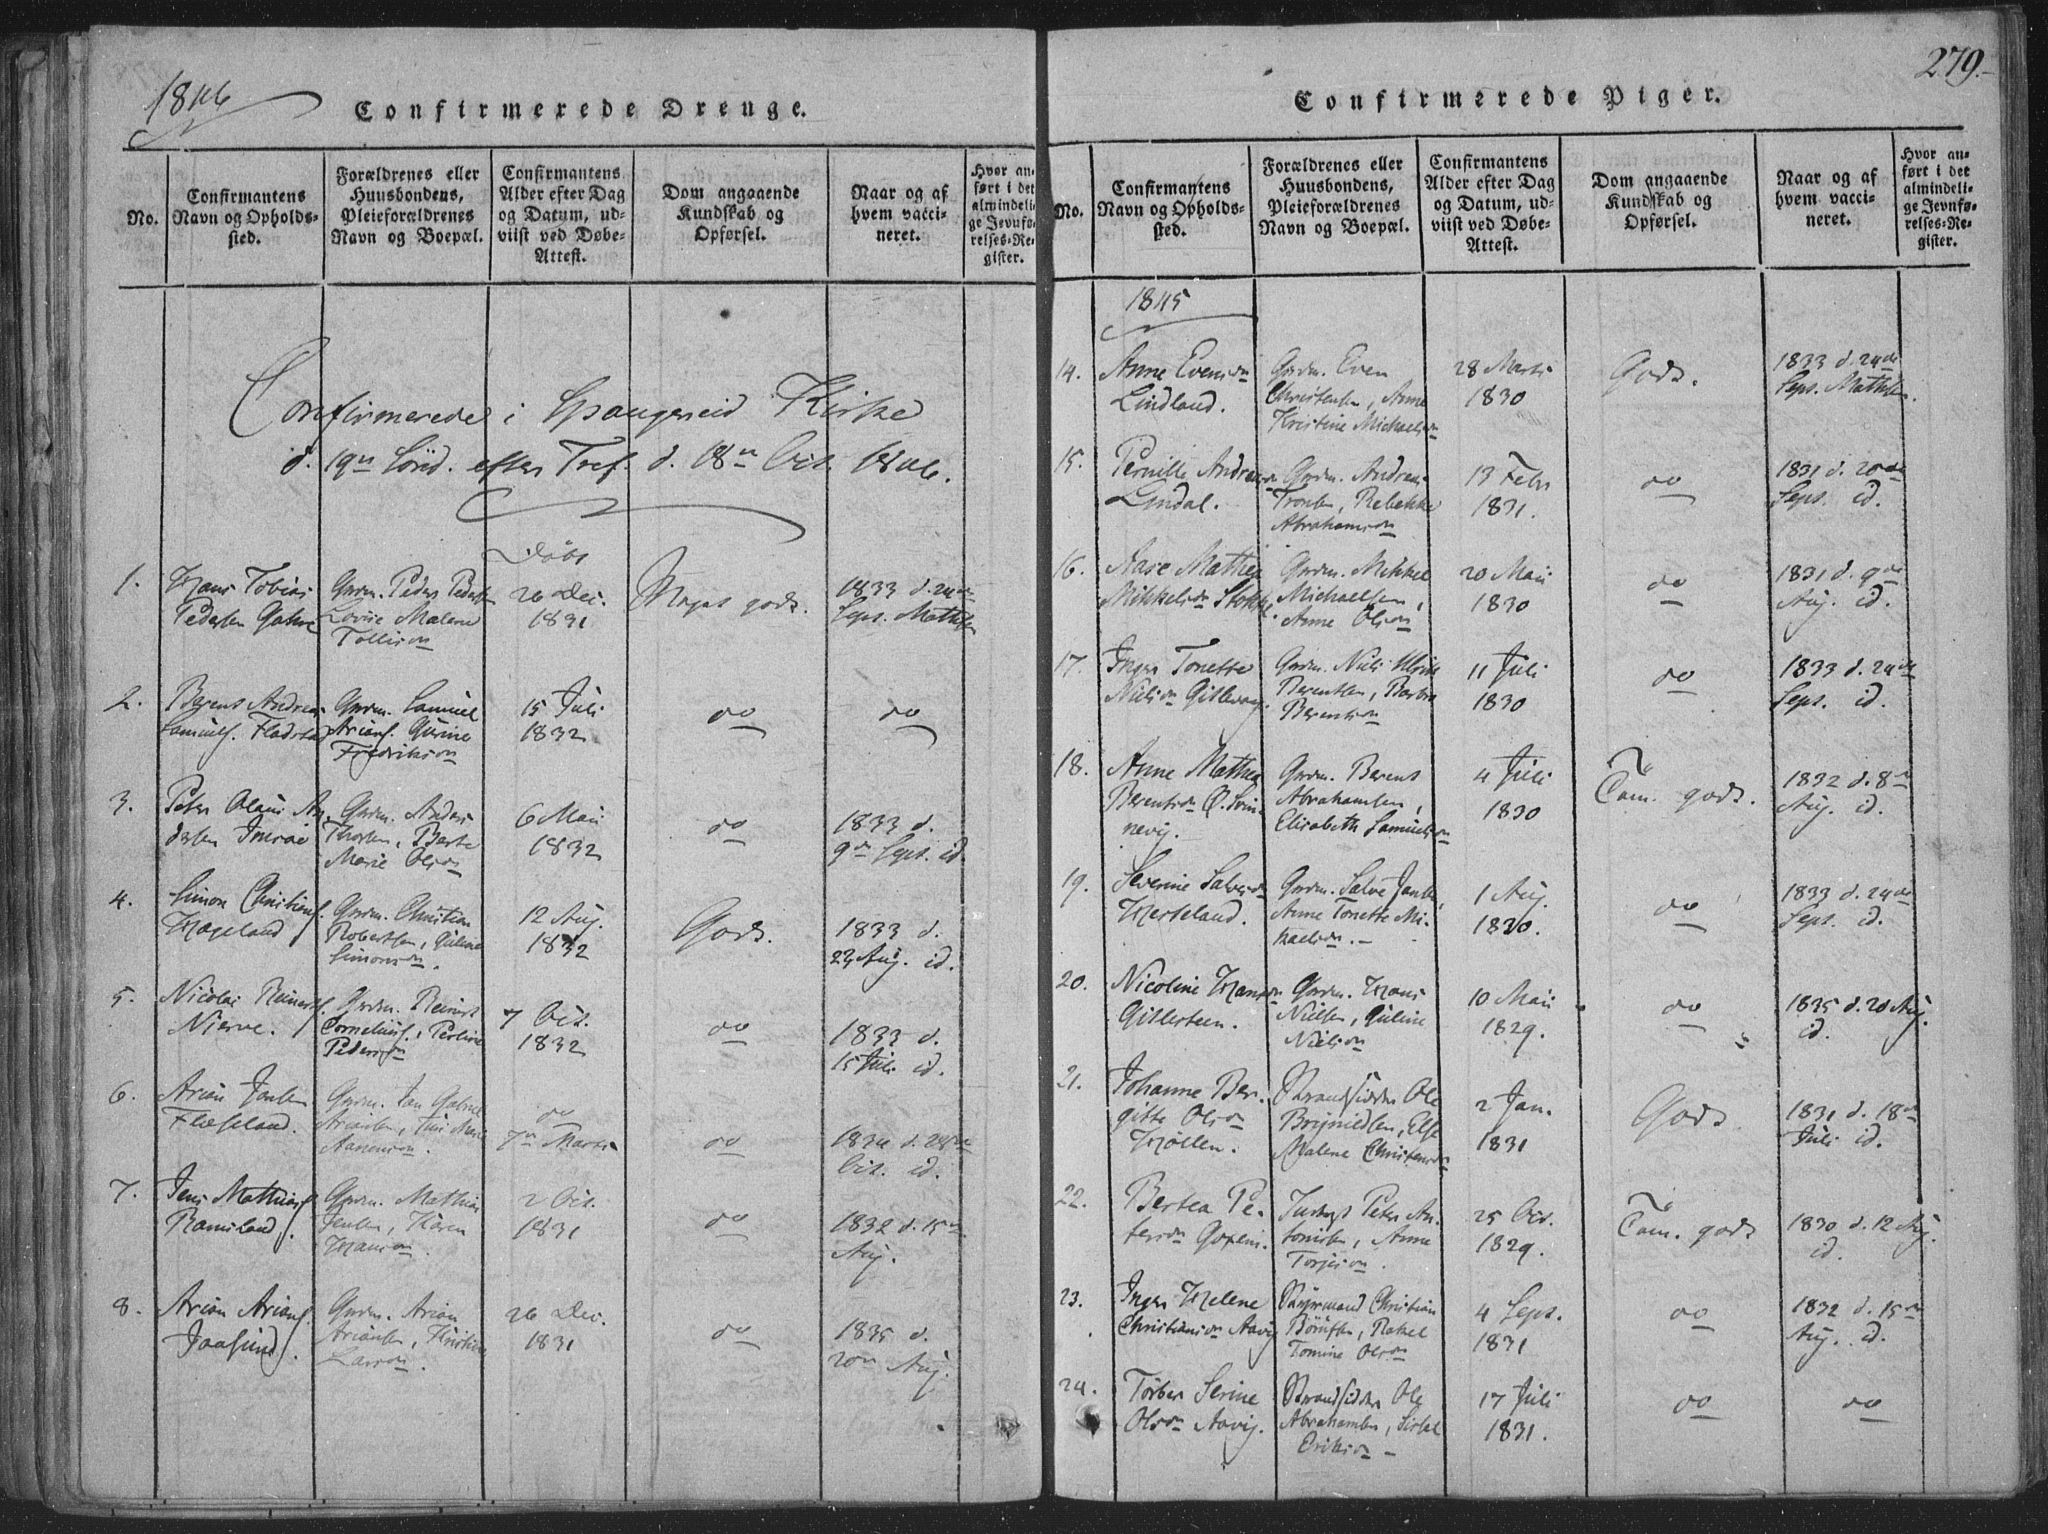 1846
Confirmerede Drenge.
No.
Confirmantens
Navn og Opholds-
sted.
Forældrenes eller
Huusbondens,
Pleieforældrenes
Navn og Boepæl.
Confirmantens
Alder efter Dag
og Datum, ud-
viist ved Døbe-
Attest.
Dom angaaende
Kundskab og
Opførsel.
Naar og af
hvem vacci-
neret.
Hvor an-
ført i det
almindeli-
ge Jevnfø-
relses-Re-
gister.
Confirmerede i Spangereid Kirke
d. 19de Sönd. efter Tref. d. 18de Oct. 1846.
Döbt
1.
Hans Tobias
Pedersen Gahre
Grdm. Peder Peders
Lovise Malene
Tollisdn
26 Dec.
1831
Meget godt.
1833 d. 24de
Sept. Mathsen
2.
Berent Andreas
Samuels. Fladstad
Grdm. Samuel
Arians. Gurine
Fredriksdn
15 Juli
1832
do
do
3.
Peter Olaus An-
dersen
Grdm. Anders
Thorsen, Berte
Marie Olsdn
6 Mai
1832
do
1833 d.
9de Sept. id.
4.
Simon Christians.
Hageland
Grdm. Christian
Robertsen, Guline
Simonsdn.
12 Aug.
1832
Godt.
1833 d.
23 Aug. id.
5.
Nicolai Reinerts.
Njerve.
Grdm. Reinert
Cornelius., Perline
Pedersdn
7 Oct.
1832
do
1833 d.
15 Juli id.
6.
Arian Jansen
Fleseland.
Grdm. Jan Gabriel
Ariansen,
Aanensdn.
do
7de Marts
do
1834 d. 24de
Oct. id.
7.
Jens Mathias.
Ramsland.
Grdm. Mathias
Jensen, Karen
Hansdn.
2 Oct.
1831
do
1832 d. 15de
Aug.
8.
Arian Arians.
Jaasund.
Grdm. Arian
Ariansen,
Larsdn.
26 Dec.
1831
do
1835 d.
20de Aug.
279.
Confirmerede Piger.
No.
Confirmantens
Navn og Opholds-
sted.
Forældrenes eller
Huusbondens,
Pleieforældrenes
Navn og Boepæl.
Confirmantens
Alder efter Dag
og Datum, ud-
viist ved Døbe-
Attest.
Dom angaaende
Kundskab og
Opførsel.
Naar og af
hvem vacci-
neret.
Hvor an-
ført i det
almindeli-
ge Jevnfø-
relses-Re-
gister.
1845
14.
Anne Evensdn
Lindland.
Grdm. Even
Christensen, Anne
Kristine Michaelsdn
28 Marts
1830
Godt.
1833 d. 24de
Sept. Mathsen.
15.
Pernille Andreasdn
Lindal.
Grdm. Andreas
Tronsen, Rebekke
Abrahamsdn
13 Febr
1831.
do
1831 d. 20de
Sept. id.
16.
Aase Mathea
Mikkelsdn Stokke.
Grdm. Mikkel
Michaelsen,
Anne Olsdn
20 Mai
1830
do
1831 d. 9de
Aug. id.
17.
Inger Tonette
Nielsdn Gitlevaag.
Grdm. Niels Ulrik
Berentsen, Barbro
Berentsdn
11 Juli
1830
do
1833 d. 24de
Sept. id.
18.
Anne Mathea
Berentsdn Ø. Svin-
nevig.
Grdm. Berent
Abrahamsen,
Elisabeth Samuelsdn
4 Juli
1830
Tam. godt.
1832 d. 8de
Aug. id.
19.
Severine Salvesdn
Herseland.
Grdm. Salve Jansen,
Anne Tonette Mi-
kaelsdn.
1 Aug.
1830.
do
1833 d. 24de
Sept. id.
20.
Nicoline Hansdn
Gillesteen.
Grdm. Hans
Nielsen, Guline
Nielsdn
10 Mai
1829.
do
1835 d. 20 Aug.
id.
21.
Johanne Ber-
gitte Olsdn
Høllen.
Strandsidder Ole
Brijnildsen, Else
Malene Christensdn
2 Jan.
1831
Godt
1831 d. 18de
Juli id.
22.
Bertea Pe-
tersdn
Peter An-
tonisen, Anne
Torjesdn.
25 Oct.
1829.
Tam. godt
1830 d. 12 Aug.
id.
23.
Inger Helene
Christiansdn Aavig
Styrmand Christian
Rakel
Tomine Olsdn
4 Sept.
1831
do
1832 d. 15de
Aug. id.
24.
Torber Serine
Olsdn Aavig.
Strandsidder Ole
Abrahamsen, Sirkel
Eriksdn
17 Juli
1831.
do
do